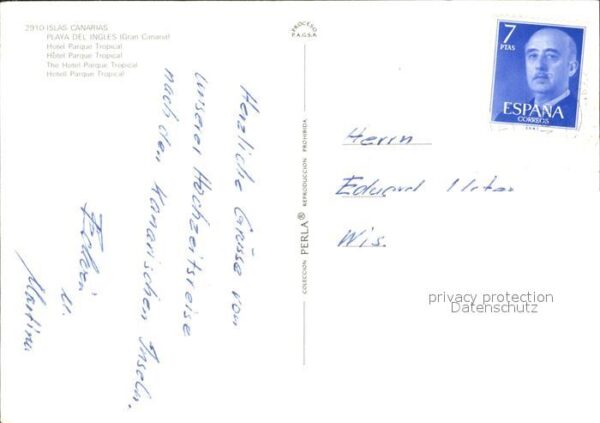 2910 ISLAS CANARIAS
PLAYA DEL INGLES (Gran Canaria)
Hotel Parque Tropical
Hôtel Parque Tropical
The Hotel Parque Tropical
Hotell Parque Tropical
Herzliche Grüsse von
unserer Hochzeitsreise
nach den Kanarischen Inseln.
u.
Martina
PROCESO
P.A.G.S.A.
COLECCION PERLA® REPRODUCCION PROHIBIDA
7
PTAS
ESPAÑA
CORREOS
Herrn
Eduard
Wis.
privacy protection
Datenschutz